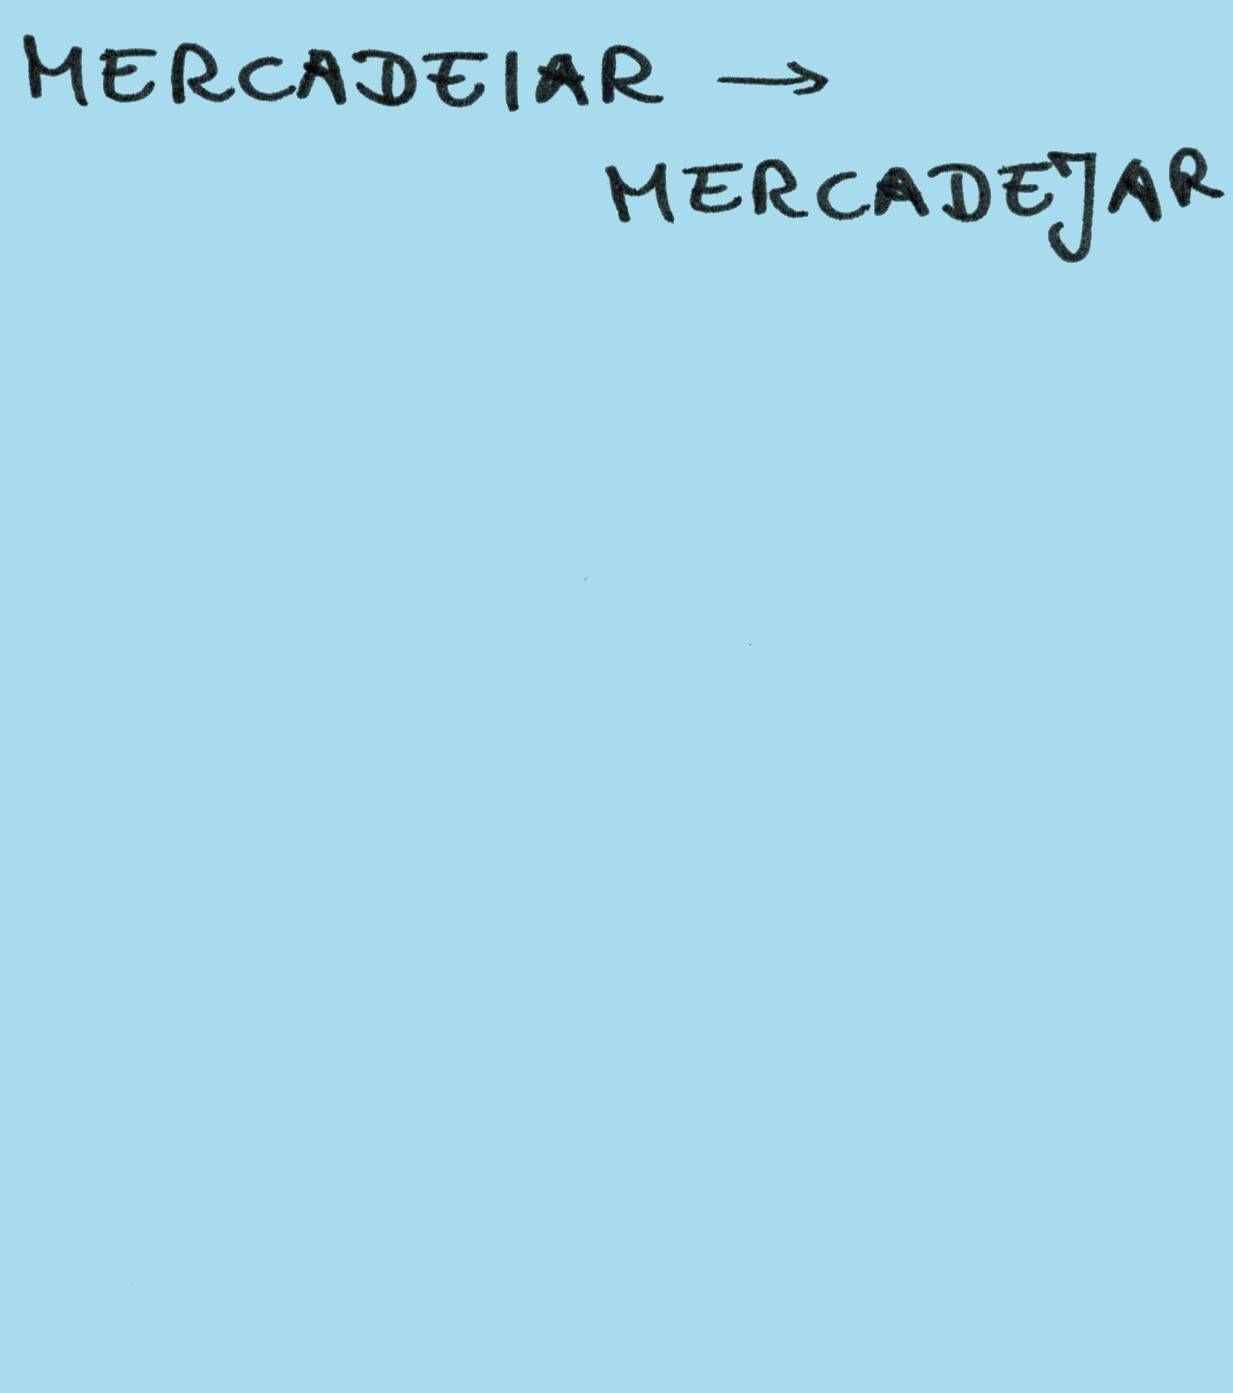 MERCADEIAR →
MERCADEJAR